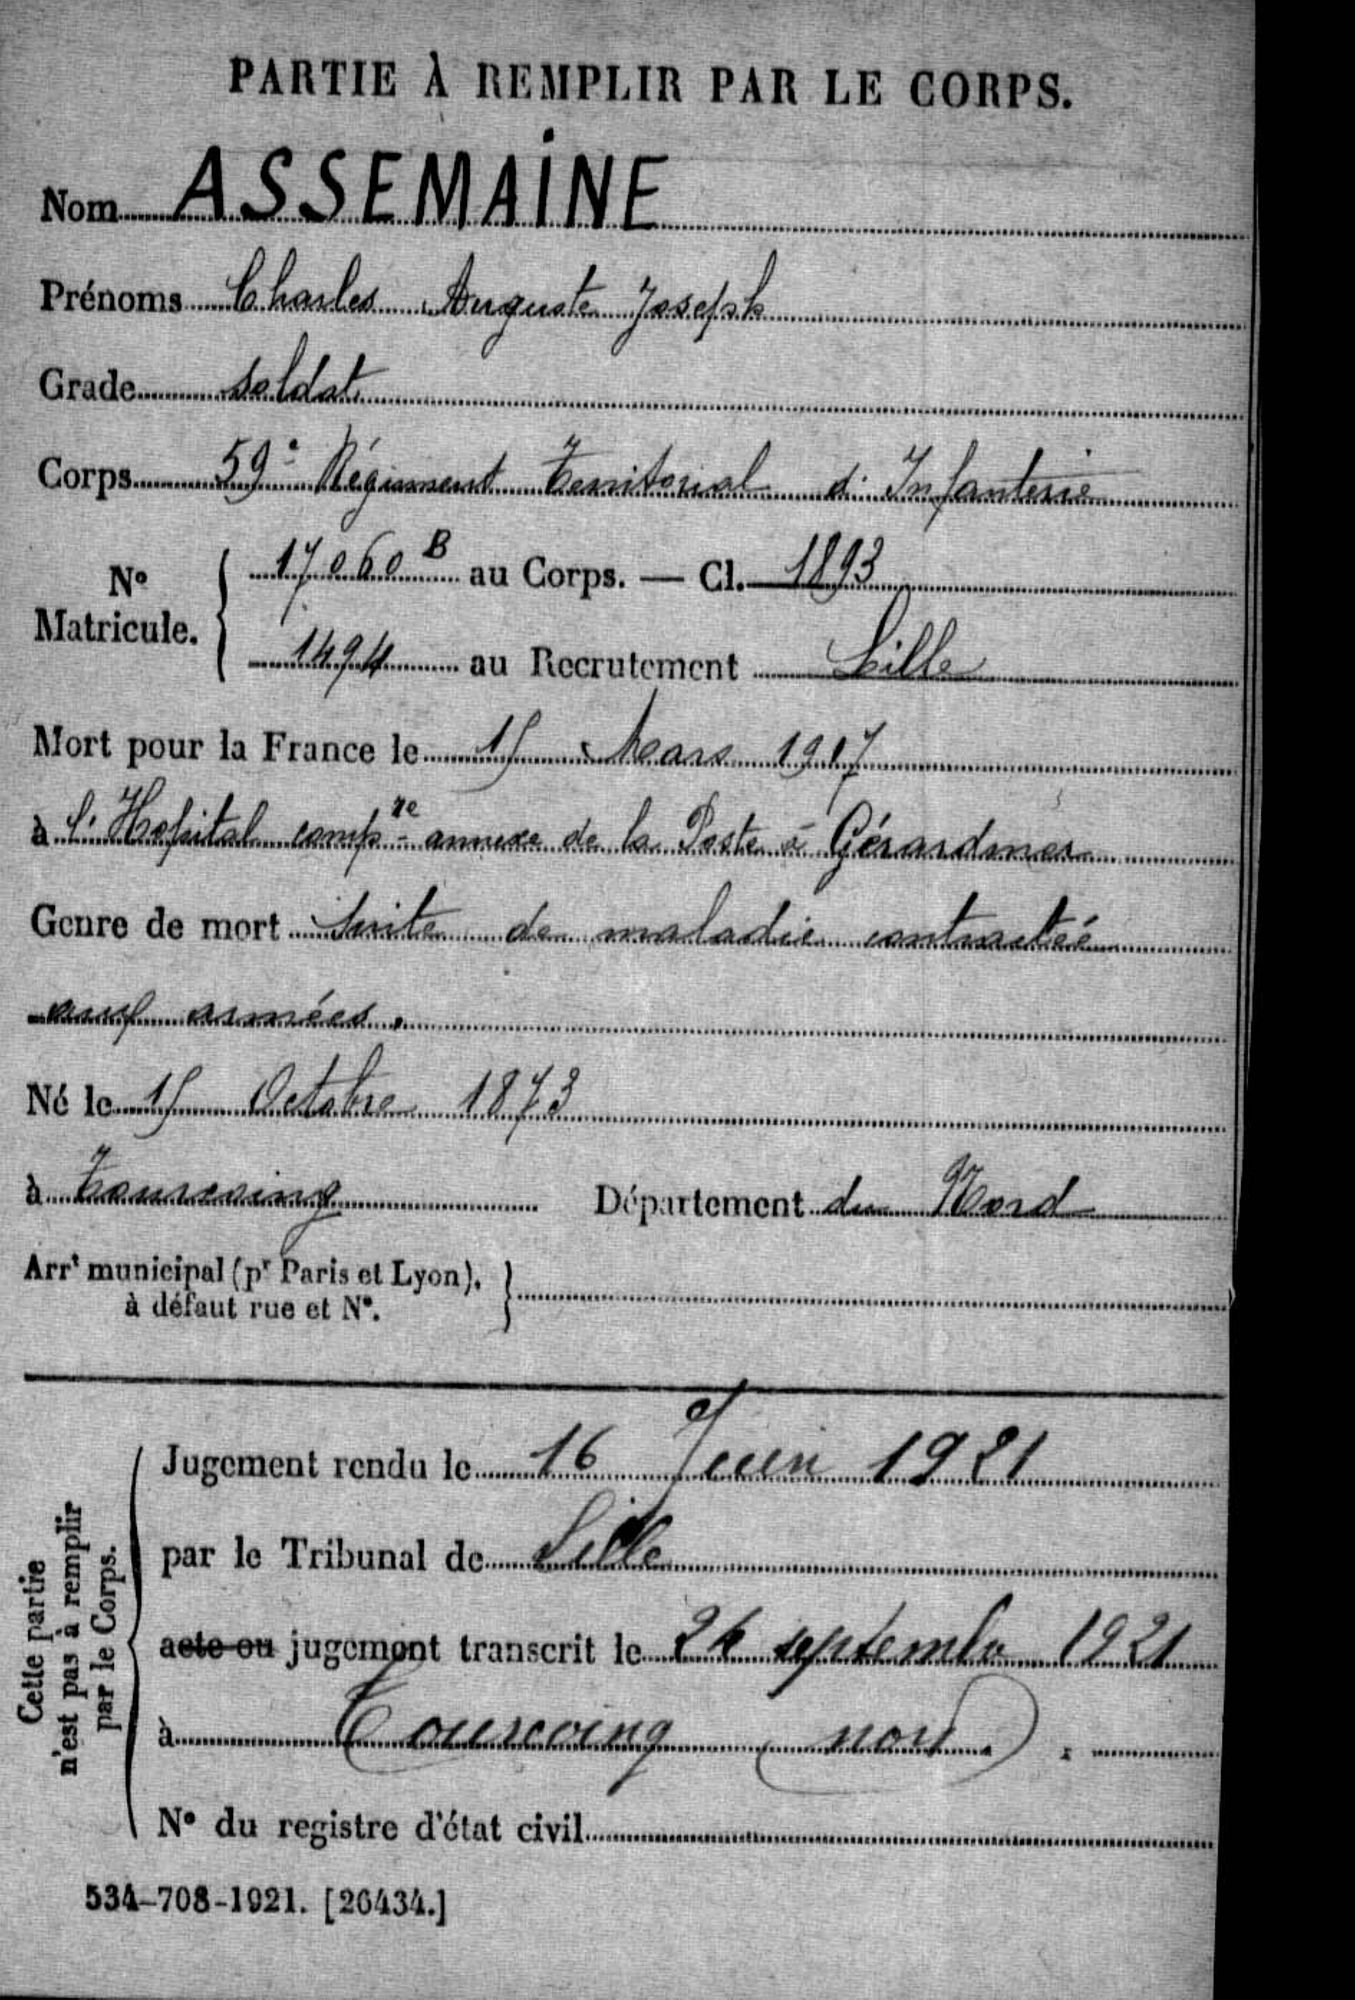 PARTIE À REMPLIR PAR LE CORPS.
Nom ASSEMAINE
Prénoms Charles Auguste Joseph
Grade soldat
Corps 59e Régiment Territorial d'Infanterie
No Matricule. 17060 B au Corps. — Cl. 1893
1494 au Recrutement Lille
Mort pour la France le 15 Mars 1917
à l'Hopital compre annexe de la Poste à Gérardmer
Genre de mort suite de maladie contractée
aux armées.
Né le 15 Octobre 1873
à Tourcoing Département du Nord
Arrt municipal (pr Paris et Lyon),
à défaut rue et No.
Cette partie
n'est pas à remplir
par le Corps.
Jugement rendu le 16 Juin 1921
par le Tribunal de Lille
acte ou jugement transcrit le septembre 1921
à Tourcoing (nord).
No du registre d'état civil
534-708-1921. [26434.]